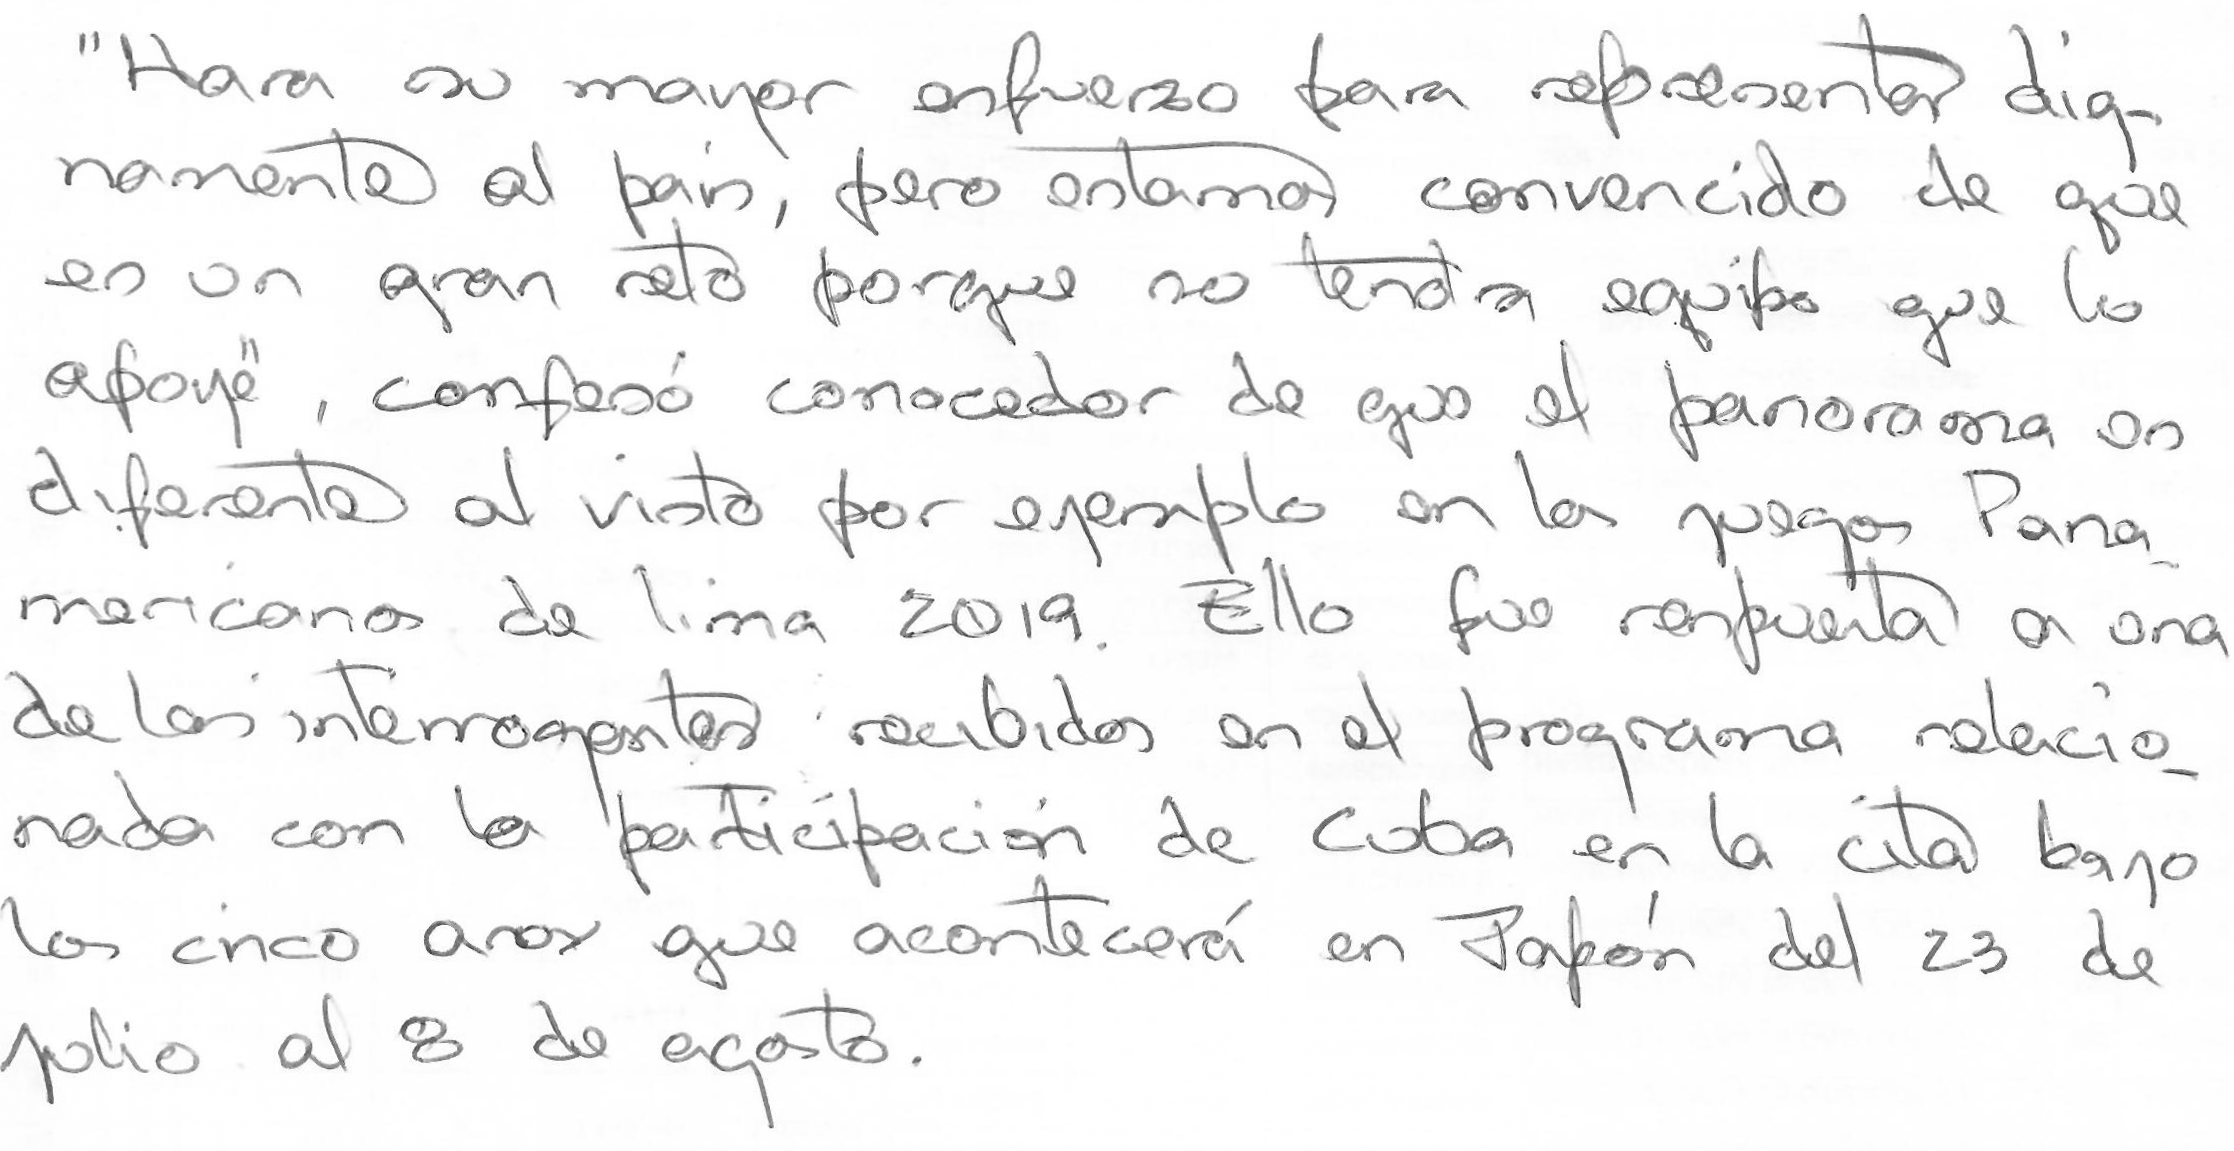 "Hara su mayor esfuerzo para representar dig-
namente al país, pero estamos convencido de que
es un gran reto porque no tendra equipo que lo
apoye", confesó conocedor de que el panorama es
diferente al visto por ejemplo en los juegos Pana-
mericanos de lima 2019. Ello fue respuesta a una
de las interrogantes recibidos en el programa relacio-
nada con la participación de Cuba en la cita bajo
los cinco aros que acontecerá en Japón del 23 de
julio al 8 de agosto.